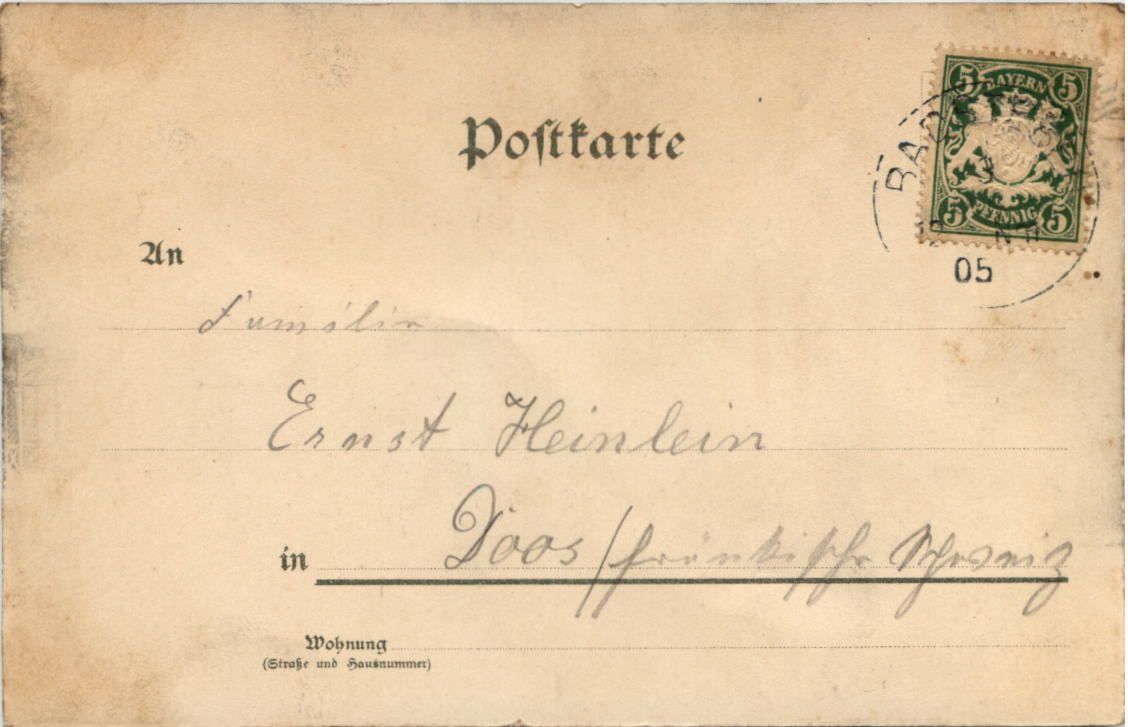 Postkarte
5 BAYERN 5
5 PFENNIG 5
05
An
Familie
Ernst Heinlein
in Doos / fränkische Schweiz
Wohnung
(Straße und Hausnummer)